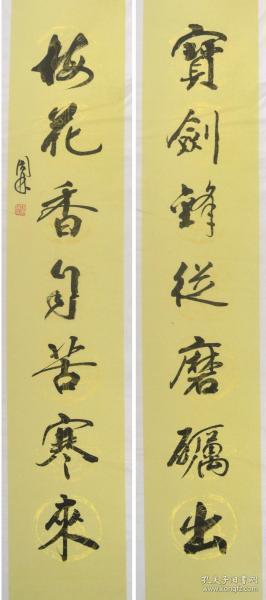 寶劍鋒從磨礪出
梅花香自苦寒來
孔夫子旧书网